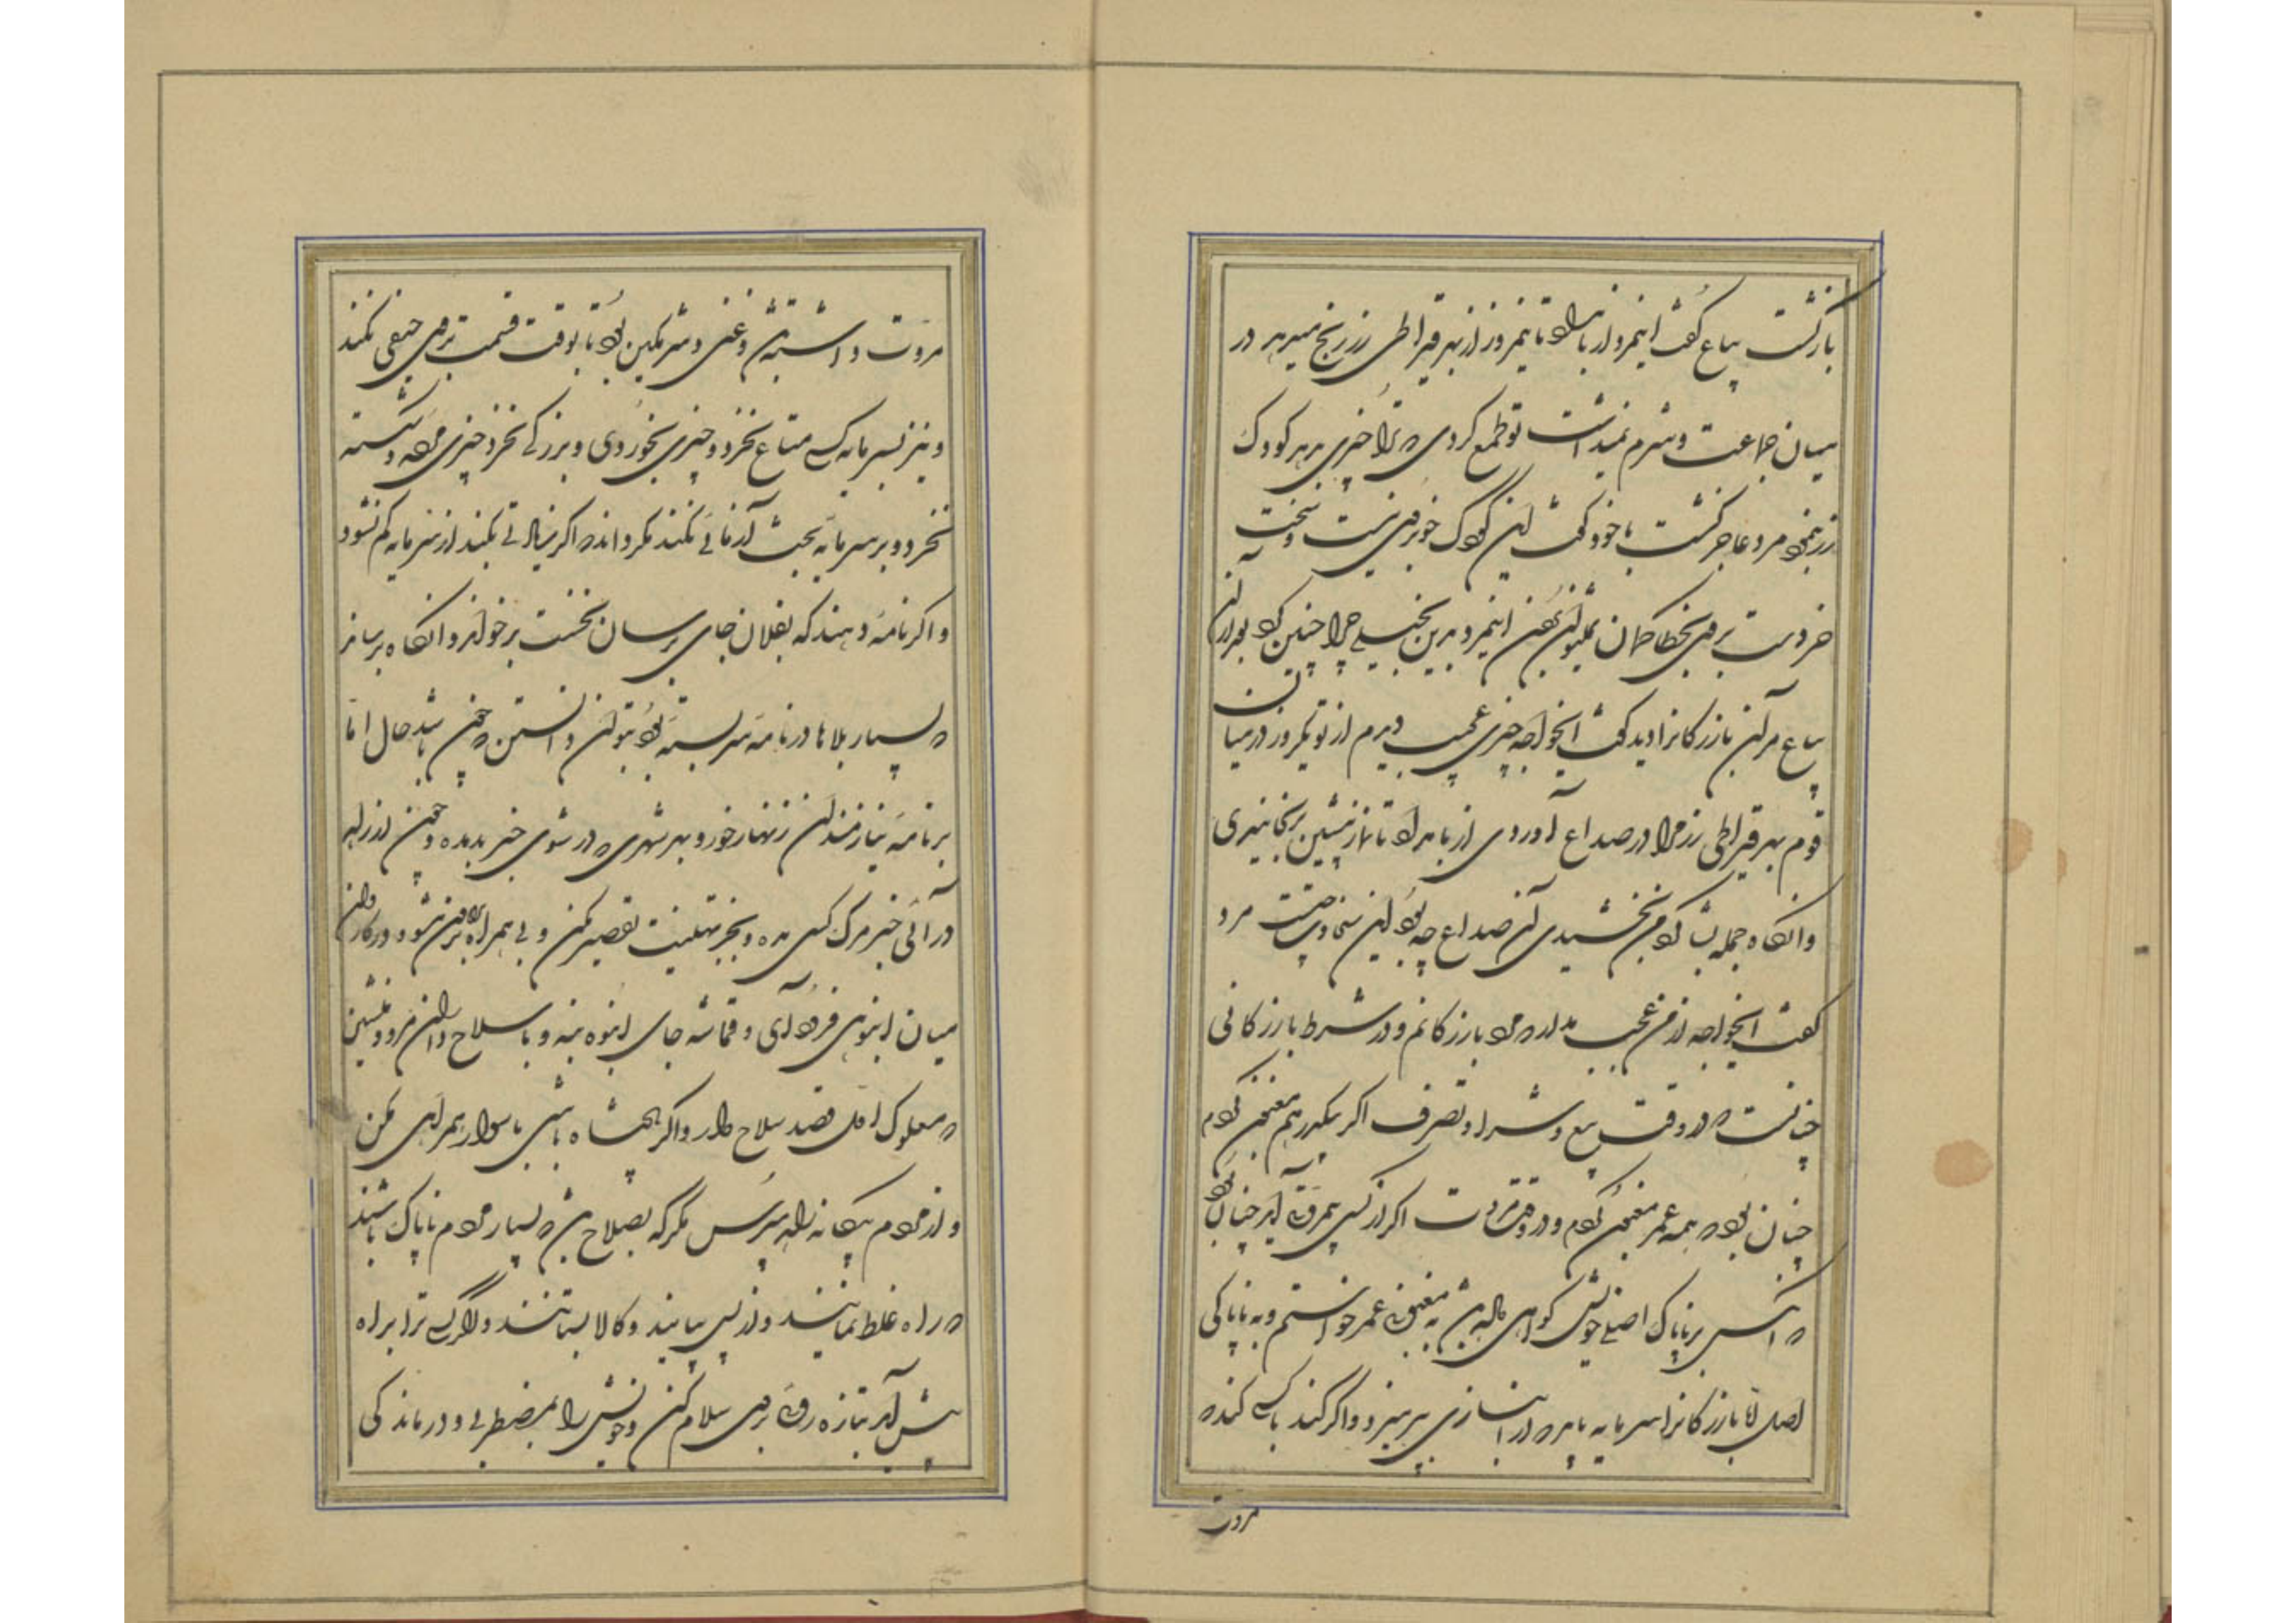 بازگشت بیاع گفت اینمرد از بامداد تا نیمروز از بهر قیراطی زر رنج میبرد در
میان جماعت و شرم نمیداشت تو طمع کردی که ترا چیزی بدهد کودک
زر بنمود مرد عاجز گشت با خود گفت این کودک خوبروی نیست و سخت
خردست بروی بخطا گمان نمیتوان بردن اینمرد بدین بخیلی چرا چنین کرد بعد از آن
بیاع مر آن بازرگانرا دید گفت ایخواجه چیزی عجب دیدم از تو یکروز در میان
قوم بهر قیراطی زر مرا در صداع آوردی از بامداد تا نماز پیشین برنجانیدی
وانگاه جمله بشاگرد من بخشیدی آن صداع چه بود این سخاوت چیست مرد
گفت ایخواجه از من عجب مدار که من مرد بازرگانم و در شرط بازرگانی
چنانست که در وقت بیع و شرا و تصرف اگر بیکدرهم مغبون گردم
چنان بود که بهمه عمر مغبون گردم و در وقت مروت اگر از کسی بیمروتی آید چنان بود
که آنکس بر ناپاک اصلی خویش گواهی داده باشد نه مغبونی عمر خواستم و نه ناپاکی
اصل اما بازرگانرا سرمایه باید که از انبازی بپرهیزد و اگر کند با کسی کند که
مروت
مروت داشته باشد و غنی و شرمگین بود تا بوقت قسمت بر وی حیفی نکند
و نیز بسرمایه کسی متاع نخرد و چیزی بخوردی و بزرگی نخرد و چیزی مرده و شکسته
نخرد و بر سرمایه بخت آزمائی نکند مگر داند که اگر زیانی کند از سرمایه کم نشود
و اگر نامه دهند که بفلان جای برسان نخست برخواند و آنگاه برساند
که بسیار بلاها در نامه سربسته بود نتوان دانستن که چون باشد حال اما
بر نامه نیازمندان زنهار مخور و بهر شهری که در شوی خبر بد مده و چون از راه
در آئی خبر مرگ کس مده و بخبر تهنیت تقصیر مکن و بی همراه براه بیرون مشو و در کاروان
میان انبوهی فرود آی و قماشه جای انبوه بنه و با سلاح داران مرو و منشین
که صعلوک اول قصد سلاح دار و اگر پیاده باشی با سوار همراهی مکن
و از مردم بیگانه راه مپرس مگر که بصلاح باشد که بسیار مردم ناپاک باشند
که راه غلط نمایند و از پس بیایند و کالا بستانند و اگر کسی ترا براه
پیش آید بتازه روئی بر وی سلام کن و خویش را بمضطربی و درماندگی